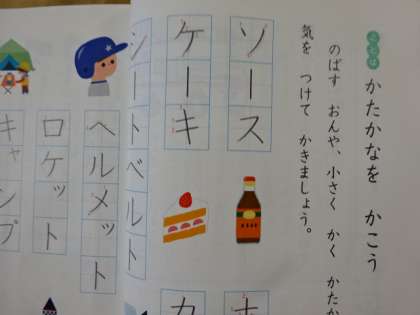 ことば
かたかなを　かこう
のばす　おんや、小さく　かく　かたか
気を　つけて　かきましょう。
ソース
ケーキ
シートベルト
ヘルメット
ロケット
キャンプ